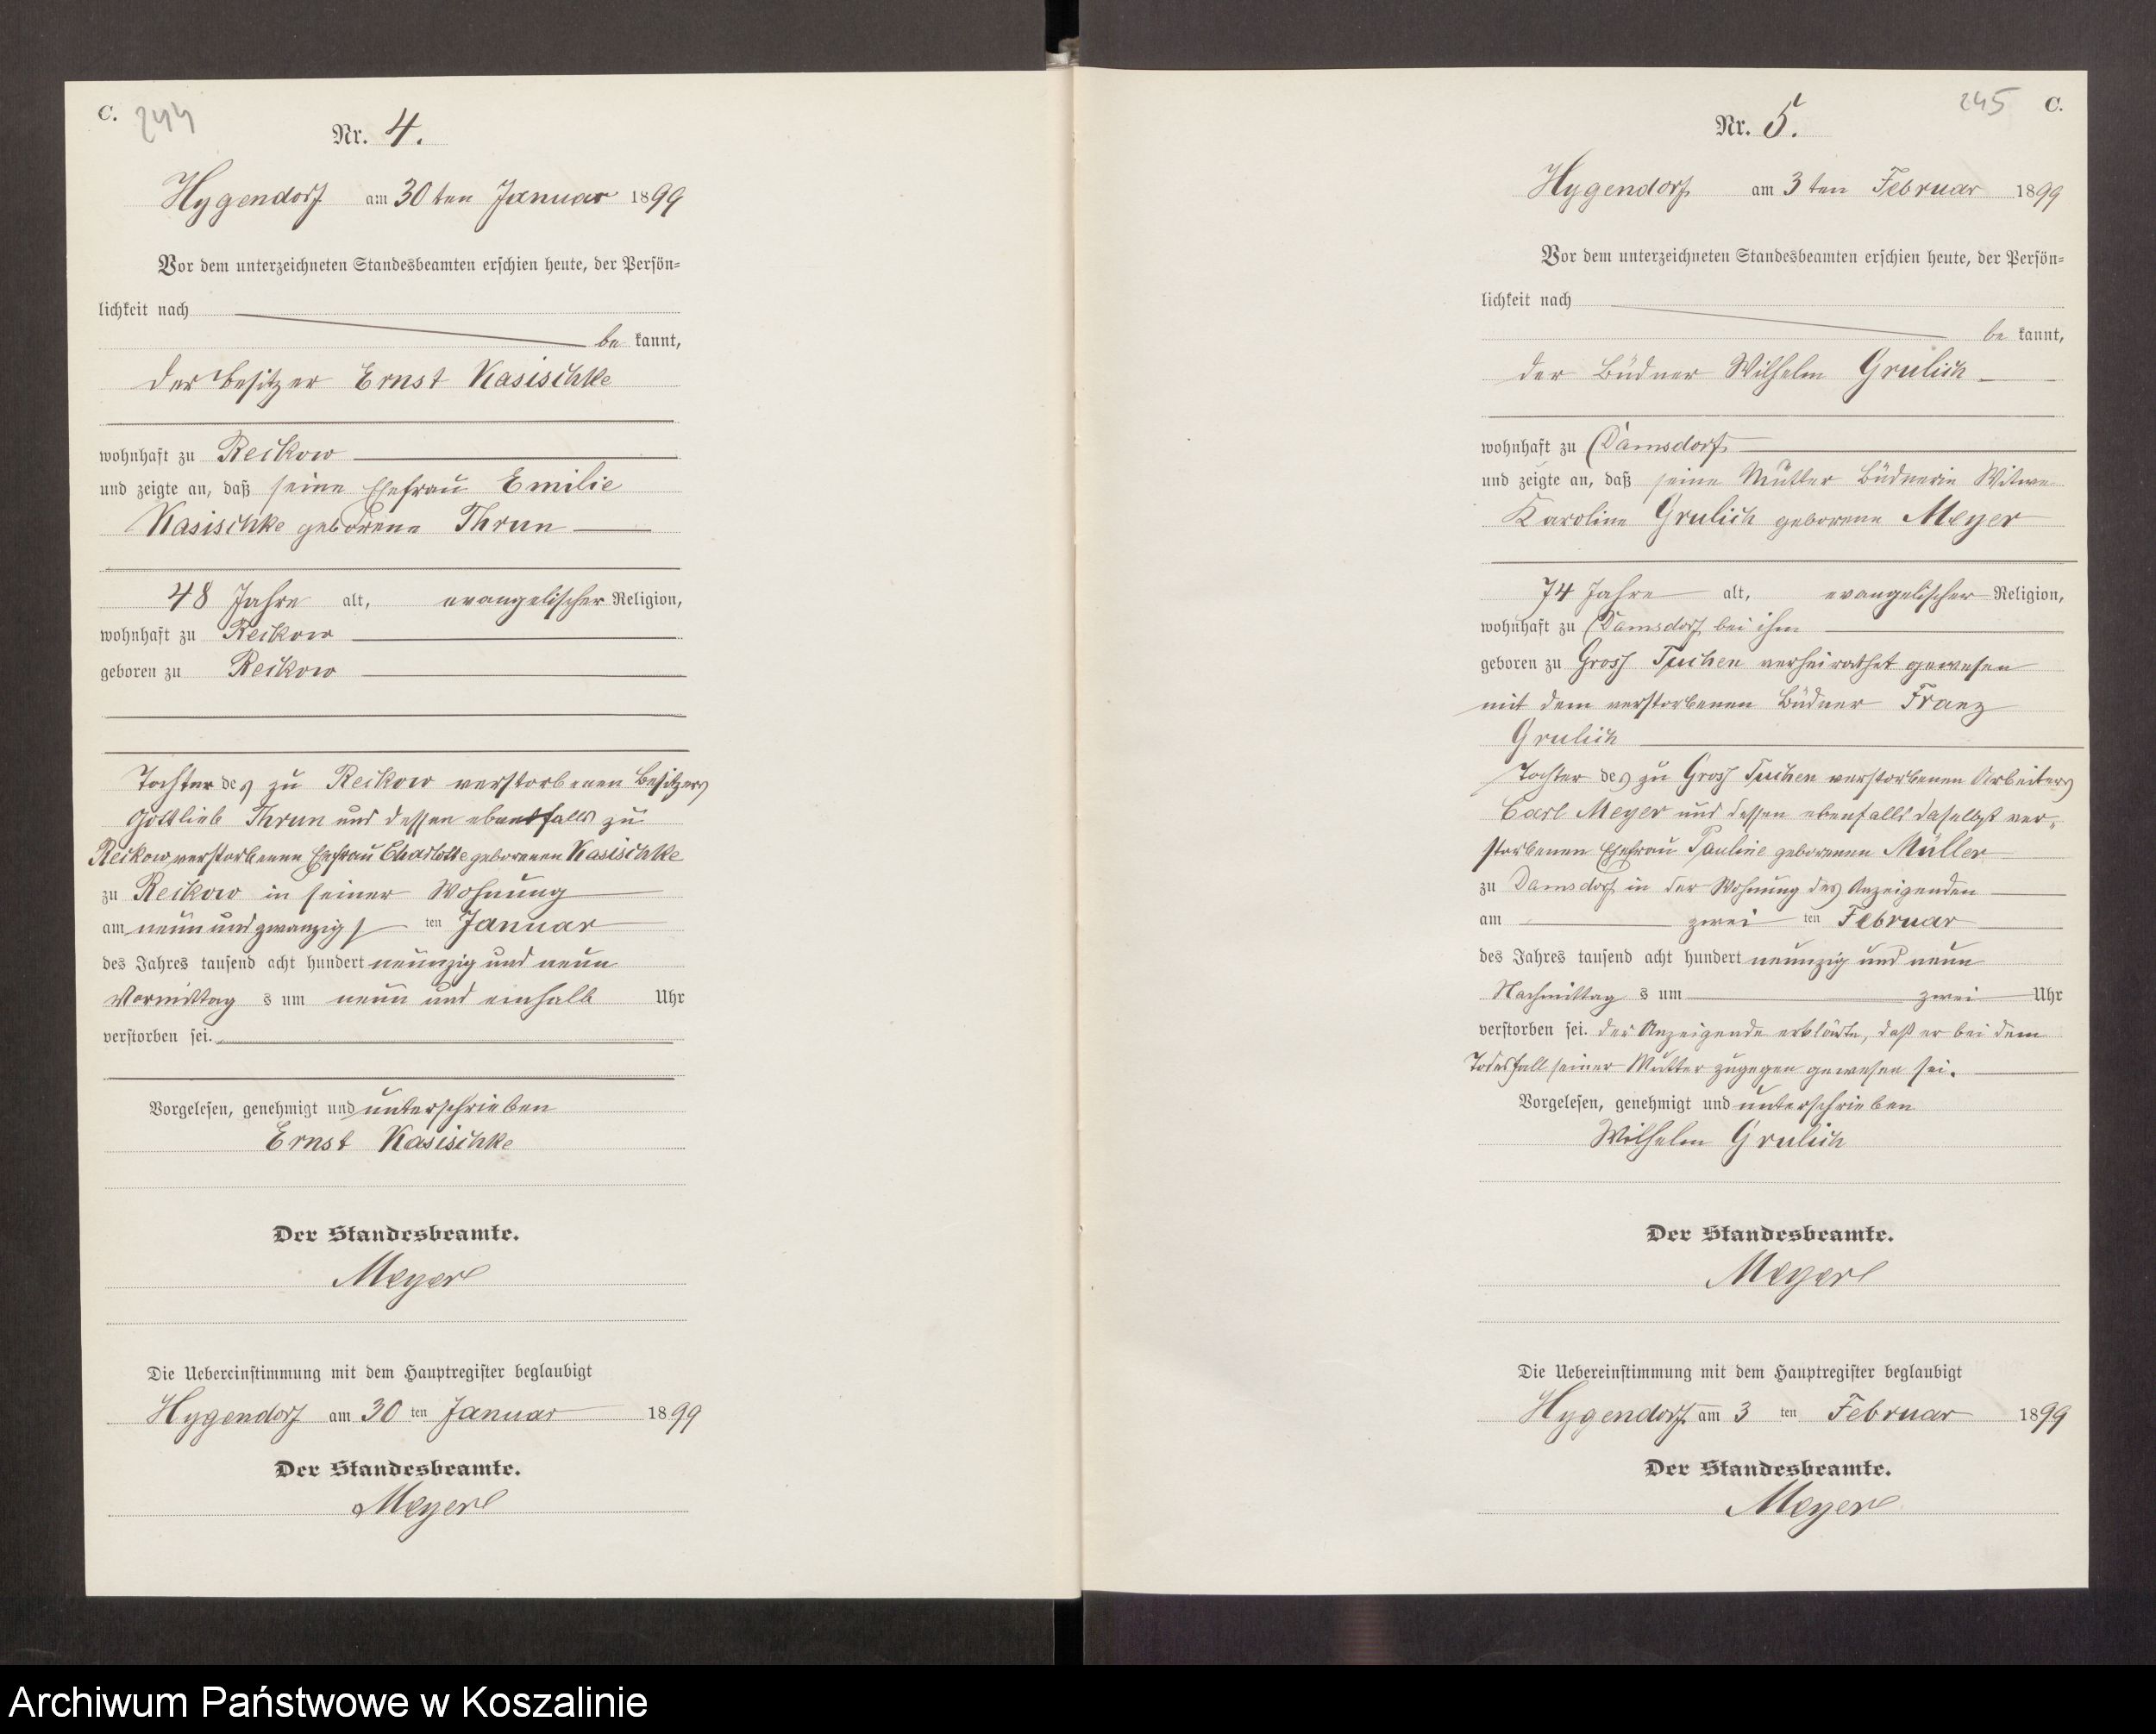 C. 244
Nr. 4.
Hygendorf am 30 ten Januar 1899
Vor dem unterzeichneten Standesbeamten erschien heute, der Persön=
lichkeit nach
be kannt,
der Besitzer Ernst Kasischke
wohnhaft zu Reckow
und zeigte an, daß seine Ehefrau Emilie
Kasischke geborene Thrun
48 Jahre alt, evangelischer Religion,
wohnhaft zu Reckow
geboren zu Reckow
Tochter des zu Reckow verstorbenen Besitzers
Gottlieb Thrun und dessen ebenfalls zu
Reckow verstorbenen Ehefrau Charlotte geborenen Kasischke
zu Reckow in seiner Wohnung
am neun und zwanzigs ten Januar
des Jahres tausend acht hundert neunzig und neun
Vormittag s um neun und einhalb Uhr
verstorben sei.
Vorgelesen, genehmigt und unterschrieben
Ernst Kasischke
Der Standesbeamte.
Meyer
Die Uebereinstimmung mit dem Hauptregister beglaubigt
Hygendorf am 30 ten Januar 1899
Der Standesbeamte.
Meyer
245 C.
Nr. 5.
Hygendorf am 3 ten Februar 1899
Vor dem unterzeichneten Standesbeamten erschien heute, der Persön=
lichkeit nach
be kannt,
der Büdner Wilhelm Grulich
wohnhaft zu Damsdorf
und zeigte an, daß seine Mutter Büdnerin Witwe
Karoline Grulich geborene Meyer
74 Jahre alt, evangelischer Religion,
wohnhaft zu Damsdorf bei ihm
geboren zu Gross Tuchen verheirathet gewesen
mit dem verstorbenen Büdner Franz
Grulich
Tochter des zu Gross Tuchen verstorbenen Arbeiters
Carl Meyer und dessen ebenfalls daselbst ver=
storbenen Ehefrau Pauline geborenen Müller
zu Damsdorf in der Wohnung des Anzeigenden
am zwei ten Februar
des Jahres tausend acht hundert neunzig und neun
Nachmittag s um zwei Uhr
verstorben sei. Der Anzeigende erklärte, daß er bei dem
Todesfall seiner Mutter zugegen gewesen sei.
Vorgelesen, genehmigt und unterschrieben
Wilhelm Grulich
Der Standesbeamte.
Meyer
Die Uebereinstimmung mit dem Hauptregister beglaubigt
Hygendorf am 3 ten Februar 1899
Der Standesbeamte.
Meyer
Archiwum Państwowe w Koszalinie